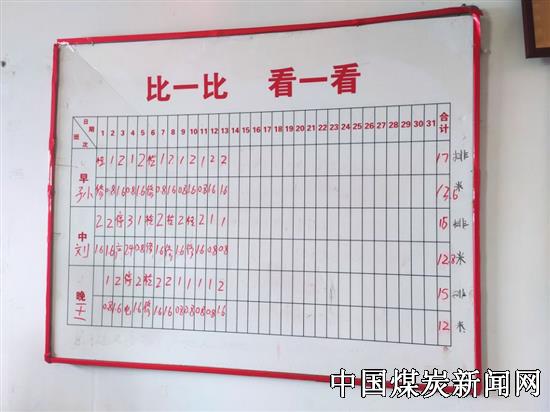 比一比 看一看
日期 班次 1 2 3 4 5 6 7 8 9 10 11 12 13 14 15 16 17 18 19 20 21 22 23 24 25 26 27 28 29 30 31 合计
早 检 1 2 1 2 检 1 2 1 2 1 2 2 17 排
修 0.8 1.6 0.8 1.6 修 0.8 1.6 0.8 1.6 0.8 1.6 1.6 13.6 米
中 2 2 停 3 1 检 2 2 2 1 1 16 排
刘 1.6 1.6 2.4 0.8 修 1.6 1.6 1.6 0.8 0.8 12.8 米
晚 1 2 停 2 检 2 2 1 1 1 1 2 15 排
王 0.8 1.6 电 1.6 修 1.6 1.6 0.8 0.8 0.8 0.8 1.6 12 米
中国煤炭新闻网